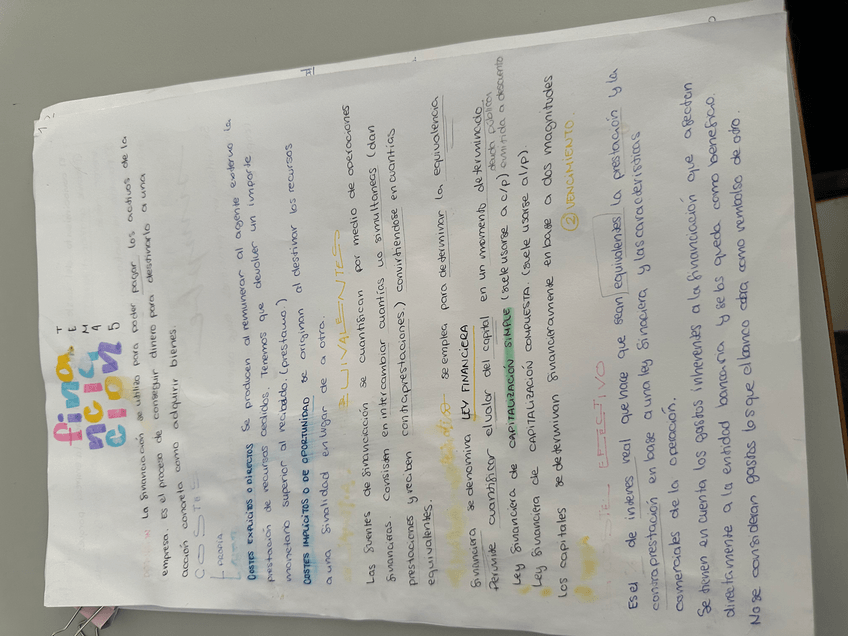 finan
ncia
cion
TEMA 5
La financiación se utiliza para poder pagar los activos de la
empresa. Es el proceso de conseguir dinero para destinarlo a una
acción concreta como adquirir bienes.
COSTES
PROPIA
COSTES EXPLICITOS O DIRECTOS Se producen al remunerar al agente externo la
prestación de recursos cedidos. Tenemos que devolver un importe
monetario superior al recibido. (prestamo.)
COSTES IMPLICITOS O DE OPORTUNIDAD se originan al destinar los recursos
a una finalidad en lugar de a otra.
Las fuentes de financiación se cuantifican por medio de operaciones
financieras. Consisten en intercambiar cuantías no simultaneas (dan
prestaciones y reciben contraprestaciones.) convirtiéndose en cuantías
equivalentes.
se emplea para determinar la equivalencia
financiera se denomina LEY FINANCIERA
Permite cuantificar el valor del capital en un momento determinado
deuda pública
Ley financiera de CAPITALIZACIÓN SIMPLE (suele usarse a c/p) emitida a descuento
Ley financiera de CAPITALIZACIÓN COMPUESTA. (suele usarse a l/p)
Los capitales se determinan financieramente en base a dos magnitudes
② VENCIMIENTO
EFECTIVO
Es el de interes real que hace que sean equivalentes la prestación y la
contraprestación en base a una ley financiera y las características
comerciales de la operación.
Se tienen en cuenta los gastos inherentes a la financiación que afectan
directamente a la entidad bancaria y se los queda como beneficio.
No se consideran gastos los que el banco cobra como rembolso de otro.